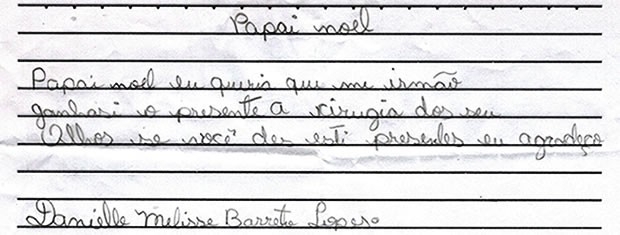 Papai noel
Papai noel eu queria que me irmão
ganhasi o presente a xirugia dos seu
Olhos se você des esti presentes eu agradeço
Danielle Melisse Barreto Lopeso